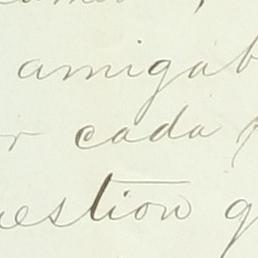 amigab
r cada
uestion g